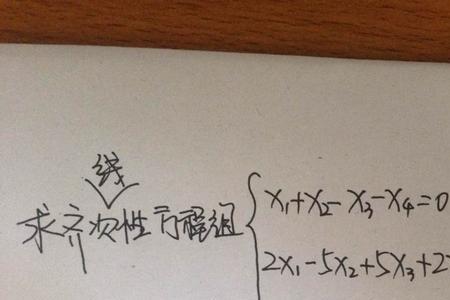 求齐次线性方程组
x₁+x₂-x₃-x₄=0
2x₁-5x₂+5x₃+2